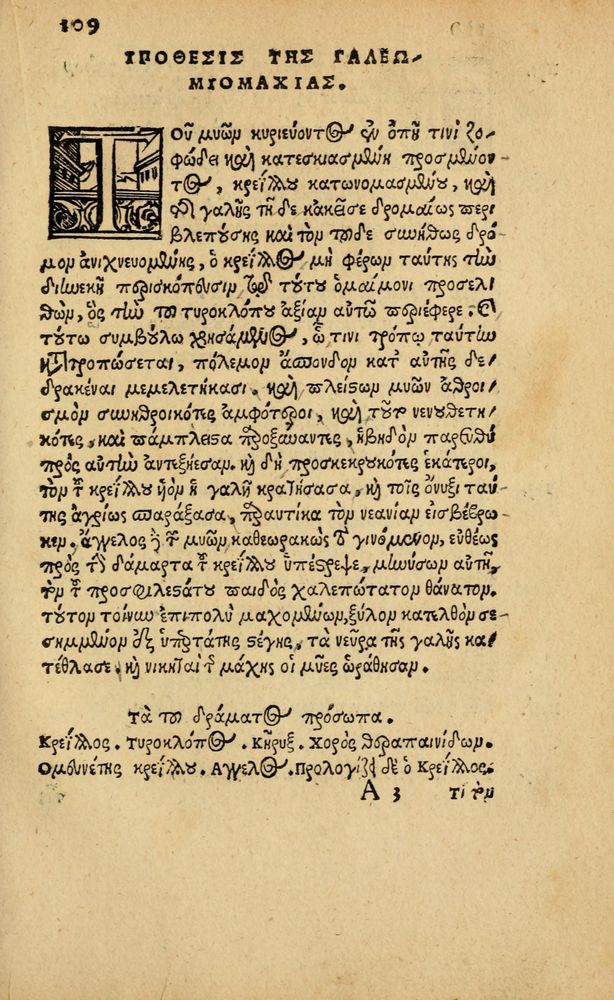 109
ΠΡΟΘΕΣΙΣ ΤΗΣ ΓΑΛΕΩ-
ΜΙΟΜΑΧΙΑΣ.
Τοῦ μυῶν κυριεύοντος ἐν ὀπῇ τινὶ ζο-
φώδει καὶ κατεσκιασμένῃ προσμένον-
τος, κρείλλου κατωνομασμένου, καὶ
τῆς γαλῆς τῇδε κἀκεῖσε δρομαίως περι
βλεπούσης καὶ τὸν τοῦδε συνήθως δρό-
μον ἀνιχνευομένης, ὁ κρεῖλλος μὴ φέρων ταύτης τὴν
διηνεκῆ περισκόπευσιν τῶν τούτου ὁμαίμονι προσελ-
θὼν, ὃς τὴν τοῦ τυροκλόπου ἀξίαν αὐτῷ περιέφερε. καὶ
τούτῳ συμβούλῳ χρησάμενος, ᾧ τινι τρόπῳ ταύτην
κατατροπώσεται, πόλεμον ἄσπονδον κατ' αὐτῆς δε-
δρακέναι μεμελετήκασι. καὶ πλεῖστον μυῶν ἀθροι-
σμὸν συνηθροικότες ἀμφότεροι, καὶ τοῦτον νενουθετη-
κότες, καὶ πάμπλειστα προξόωαντες, ἡβηδὸν παρευθὺ
πρὸς αὐτὴν ἀντεξῄεσαν. καὶ δὴ προσκεκρουκότες ἑκάτεροι,
τὸν τοῦ κρείλλου υἱὸν ἡ γαλῆ κρατήσασα, καὶ τοῖς ὄνυξι ταύ-
της ἀγρίως σπαράξασα, παραυτίκα τὸν νεανίαν εἰσβέβρω-
κεν. ἄγγελος δὲ τῶν μυῶν καθεωρακὼς τὸ γινόμενον, εὐθέως
πρὸς τὴν δάμαρτα τοῦ κρείλλου ὑπέστρεψε, μηνύσων αὐτῇ,
τὸν τοῦ προσφιλεστάτου παιδὸς χαλεπώτατον θάνατον.
τούτον τοίνυν ἐπιπολὺ μαχομένων, ξύλον κατελθὸν σε-
σημμένον ἐξ ὑπερτάτης στέγης, τὰ νεῦρα τῆς γαλῆς κα-
τέθλασε. καὶ νικηταὶ τῆς μάχης οἱ μῦες ὡράθησαν.
Τὰ τοῦ δράματος πρόσωπα.
Κρεῖλλος. Τυροκλόπος. Κῆρυξ. Χορὸς θεραπαινίδων.
Ομευνέτης κρείλλου. Αγγελος. Προλογίζει δὲ ὁ Κρεῖλλος.
A 3 Τί τὸν